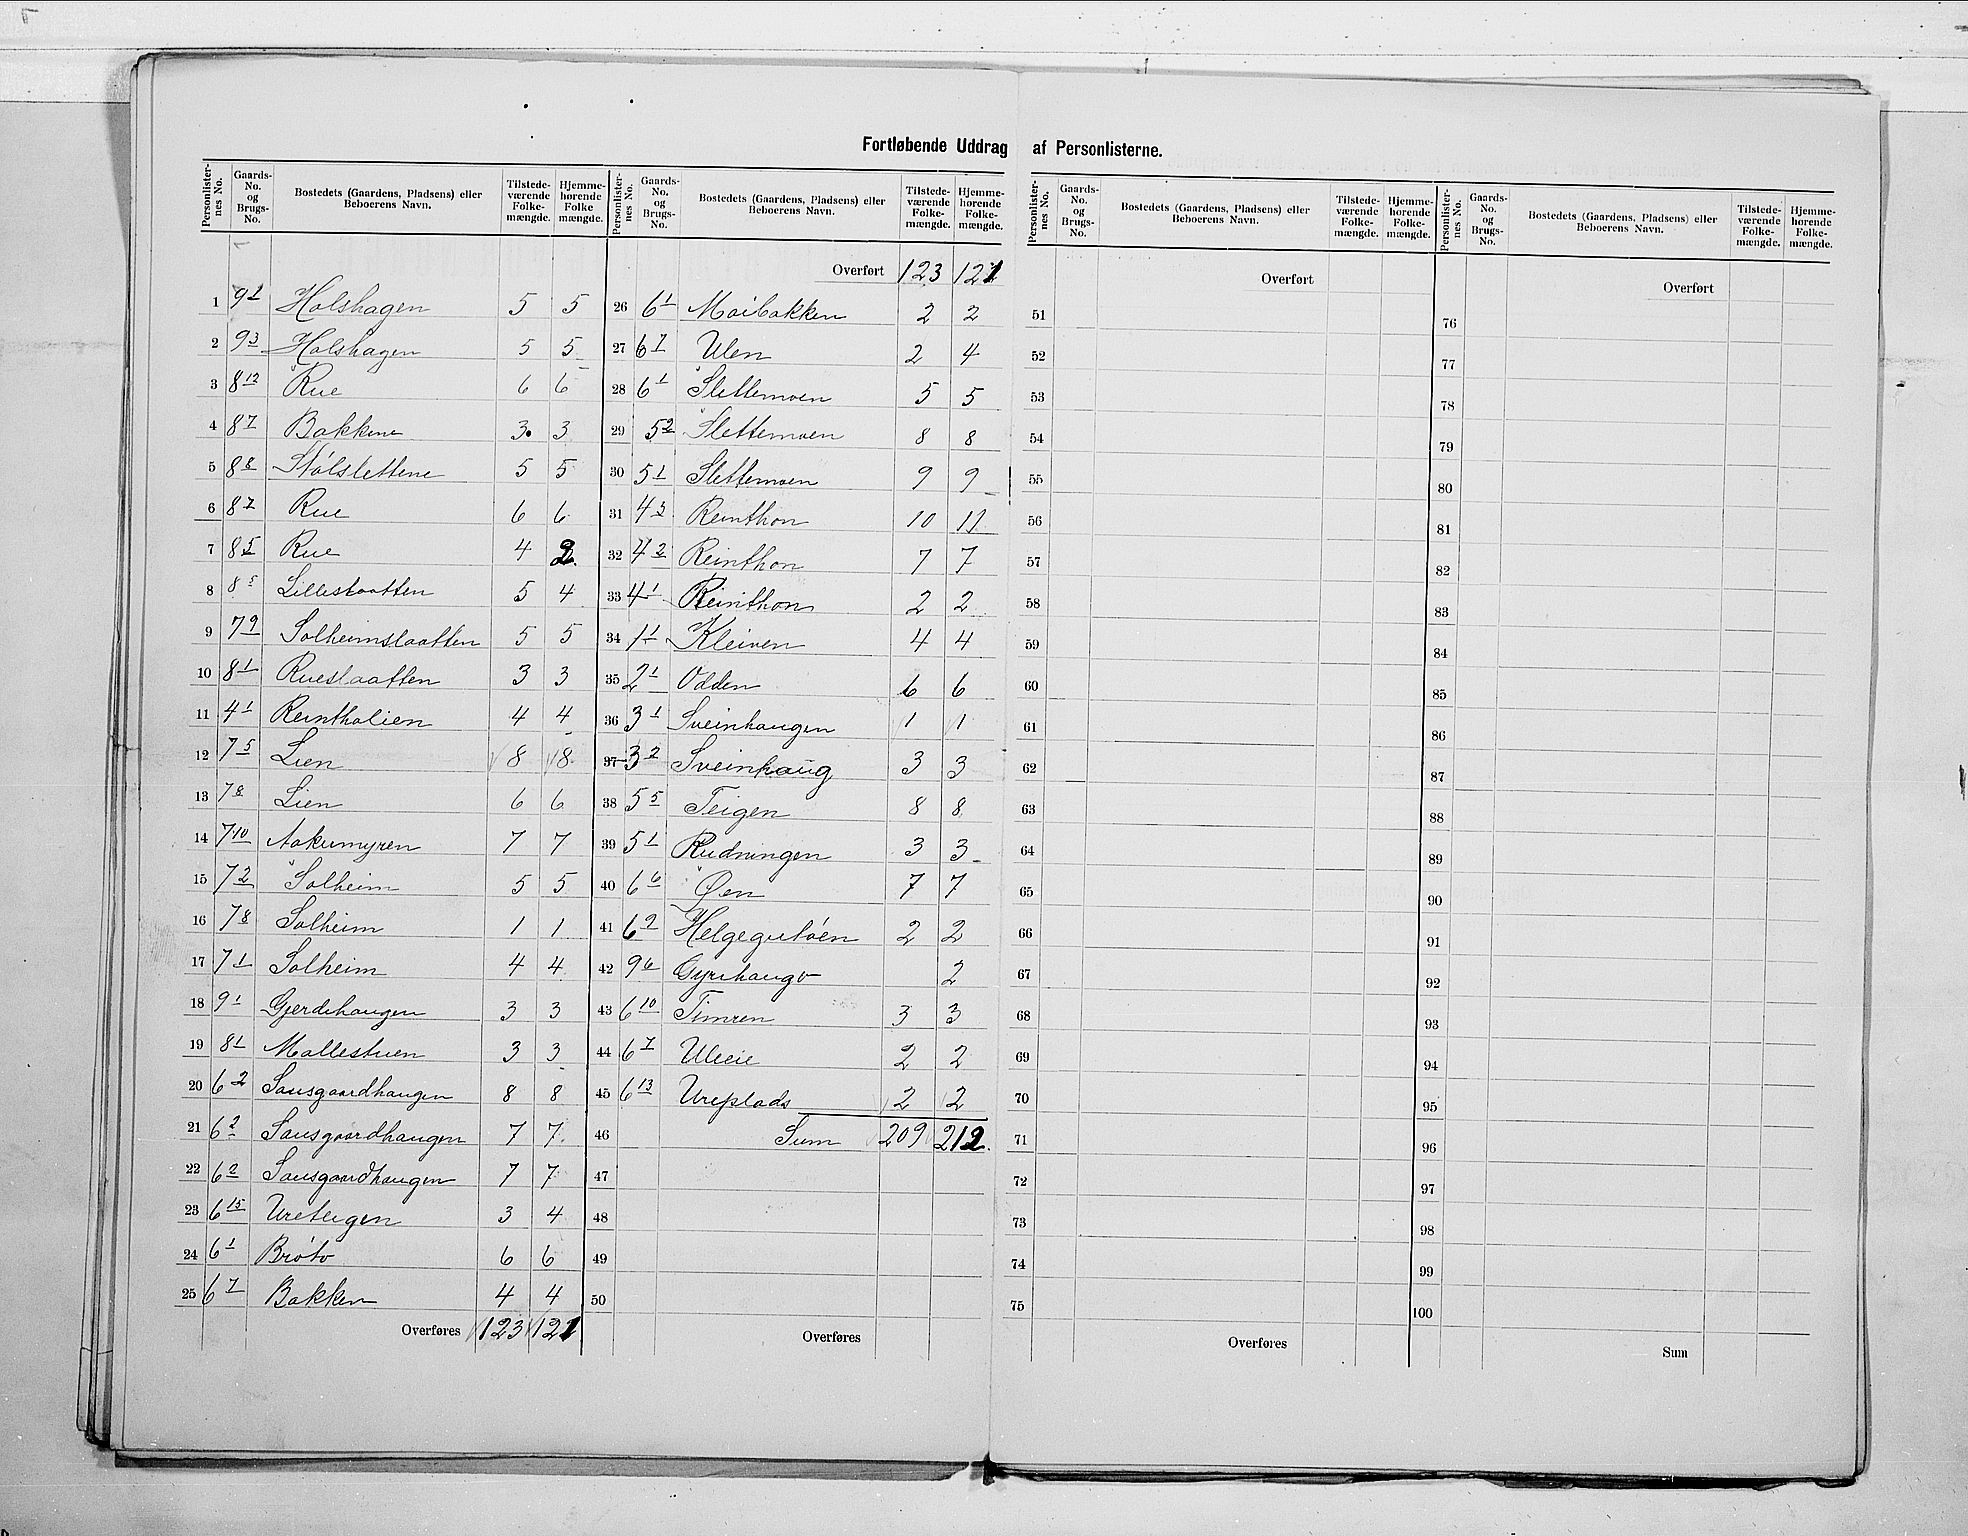 Fortløbende Uddrag af Personlisterne.
Personlisternes No. Gaards-No. og Brugs-No. Bostedets (Gaardens, Pladsens) eller Beboerens Navn. Tilstedeværende Folkemængde. Hjemmehørende Folkemængde.
1 9 1 Holshagen 5 5
2 9 3 Holshagen 5 5
3 8 12 Rue 6 6
4 8 7 Bakkene 3 3
5 8 8 Stólslettene 5 5
6 8 7 Rue 6 6
7 8 5 Rue 4 2
8 8 5 Lilleslaatten 5 4
9 7 9 Solheimslaatten 5 5
10 8 1 Rueslaatten 3 3
11 4 1 Reintholien 4 4
12 7 5 Lien 8 8
13 7 8 Lien 6 6
14 7 10 Aakumyren 7 7
15 7 2 Solheim 5 5
16 7 8 Solheim 1 1
17 7 1 Solheim 4 4
18 9 1 Gjerdehaugen 3 3
19 8 1 Mallestuen 3 3
20 6 2 Sausgaardhaugen 8 8
21 6 2 Sausgaardhaugen 7 7
22 6 2 Sausgaardhaugen 7 7
23 6 15 Ureteigen 3 4
24 6 1 Bróto 6 6
25 6 7 Bakken 4 4
Overføres 123 121
Personlisternes No. Gaards-No. og Brugs-No. Bostedets (Gaardens, Pladsens) eller Beboerens Navn. Tilstedeværende Folkemængde. Hjemmehørende Folkemængde.
Overført 123 121
26 6 1 Moibakken 2 2
27 6 7 Ulen 2 4
28 6 1 Slettemoen 5 5
29 5 2 Slettemoen 8 8
30 5 1 Slettemoen 9 9
31 4 3 Reinthon 10 11
32 4 2 Reinthon 7 7
33 4 1 Reinthon 2 2
34 1 1 Kleiven 4 4
35 2 1 Odden 6 6
36 3 1 Sveinhaugen 1 1
37 3 2 Sveinhaug 3 3
38 5 5 Teigen 8 8
39 5 1 Rudningen 3 3
40 6 6 Øen 7 7
41 6 2 Helgegutóen 2 2
42 9 6 Gyrihaugo 2
43 6 10 Timren 3 3
44 6 7 2 2
45 6 13 Ureplads 2 2
46 Sum 209 212
47
48
49
50
Overføres
Personlisternes No. Gaards-No. og Brugs-No. Bostedets (Gaardens, Pladsens) eller Beboerens Navn. Tilstedeværende Folkemængde. Hjemmehørende Folkemængde.
Overført
51
52
53
54
55
56
57
58
59
60
61
62
63
64
65
66
67
68
69
70
71
72
73
74
75
Overføres
Personlisternes No. Gaards-No. og Brugs-No. Bostedets (Gaardens, Pladsens) eller Beboerens Navn. Tilstedeværende Folkemængde. Hjemmehørende Folkemængde.
Overført
76
77
78
79
80
81
82
83
84
85
86
87
88
89
90
91
92
93
94
95
96
97
98
99
100
Sum